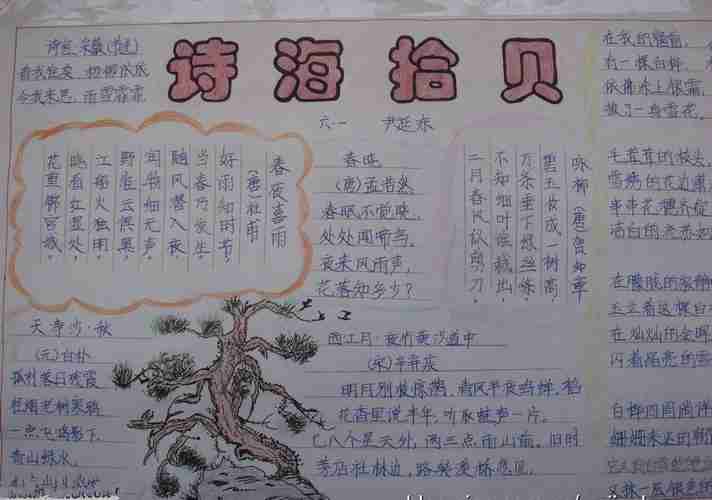 诗海拾贝
六·一 尹延东
诗经 采薇(节选)
昔我往矣 杨柳依依
今我来思,雨雪霏霏
春夜喜雨
(唐)杜甫
好雨知时节,
当春乃发生。
随风潜入夜
润物细无声。
野径云俱黑,
江船火独明
晓看红湿处,
花重锦官城。
春晓
(唐)孟浩然
春眠不觉晓,
处处闻啼鸟。
夜来风雨声,
花落知多少?
咏柳(唐)贺知章
碧玉妆成一树高
万条垂下绿丝绦
不知细叶谁裁出
二月春风似剪刀。
天净沙·秋
(元)白朴
孤村落日残霞
轻烟老树寒鸦
一点飞鸿影下
青山绿水,
西江月·夜行黄沙道中
(宋)辛弃疾
明月别枝惊鹊,清风半夜鸣蝉。稻
花香里说丰年,听取蛙声一片。
七八个星天外,两三点雨山前。旧时
茅店社林边,路转溪桥忽见。
在我的窗前,
有一棵白桦,
依拂涂上银霜,
披了一身雪花。
毛茸茸的枝头,
雪绣的花边潇
串串花穗齐绽
洁白的流苏如
在朦胧的寂静
玉立着这棵白
在灿灿的金晖
闪着晶亮的雪
白桦四周徜徉
姗姗来迟的朝
又抹一层银色的